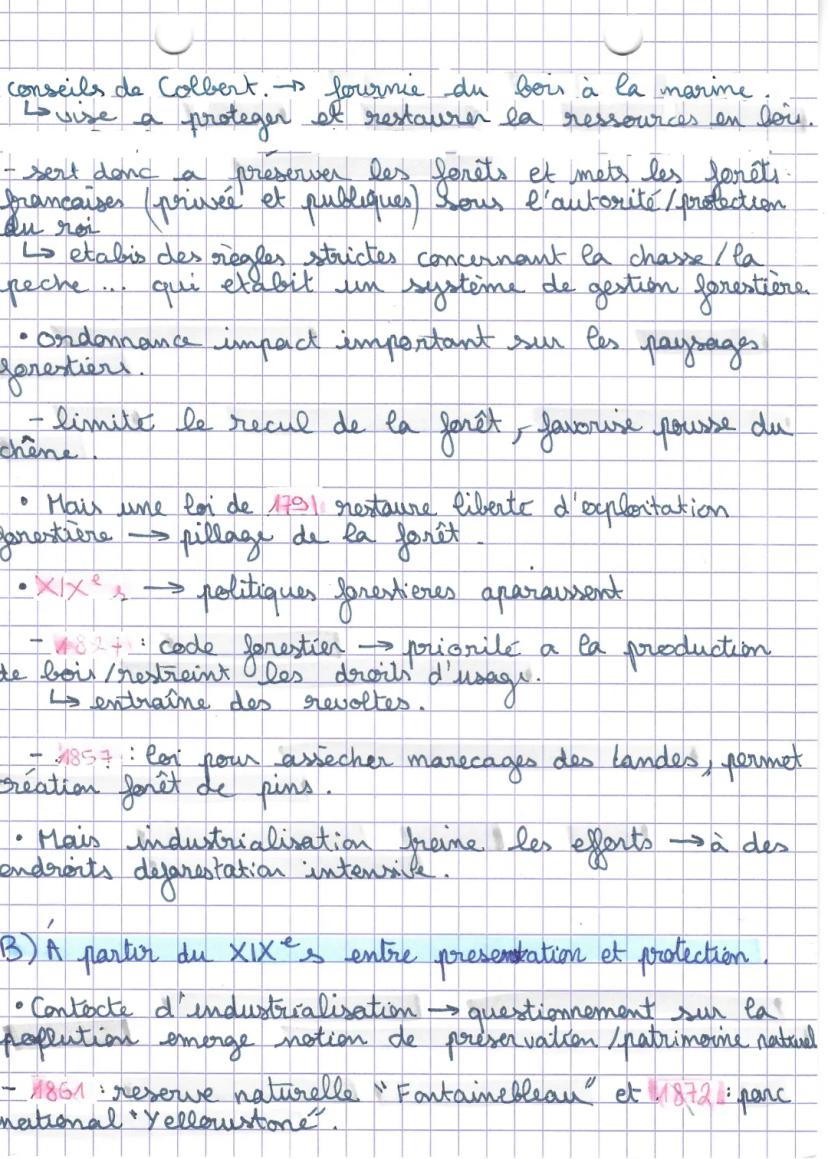 conseils de Colbert. → fournie du bois à la marine.
↳ vise a proteger et restaurer la ressources en bois.
- sert donc a préserver les forêts et mets les forêts
françaises (privée et publiques) sous l'autorité/protection
du roi
↳ etabis des règles strictes concernant la chasse/la
peche... qui etabit un système de gestion forestière
• ordonnance impact important sur les paysages
forestiers.
- limite le recul de la forêt, favorise pousse du
chêne.
• Mais une loi de 1791 restaure liberte d'exploitation
forestière → pillage de la forêt.
• XIXe s → politiques forestieres aparaussent
- 1827 : code forestier → priorité a la production
de bois/restreint les droits d'usage.
↳ entraîne des revoltes.
- 1857 : loi pour assècher marecages des landes, permet
création forêt de pins.
• Mais industrialisation freine les efforts → à des
endroits deforestation intensive.
B) À partir du XIXe s entre presentation et protection.
• Contexte d'industrialisation → questionnement sur la
pollution emerge notion de préservation/patrimoine naturel
- 1861 : reserve naturelle "Fontainebleau" et 1872 : parc
national "Yellowstone".